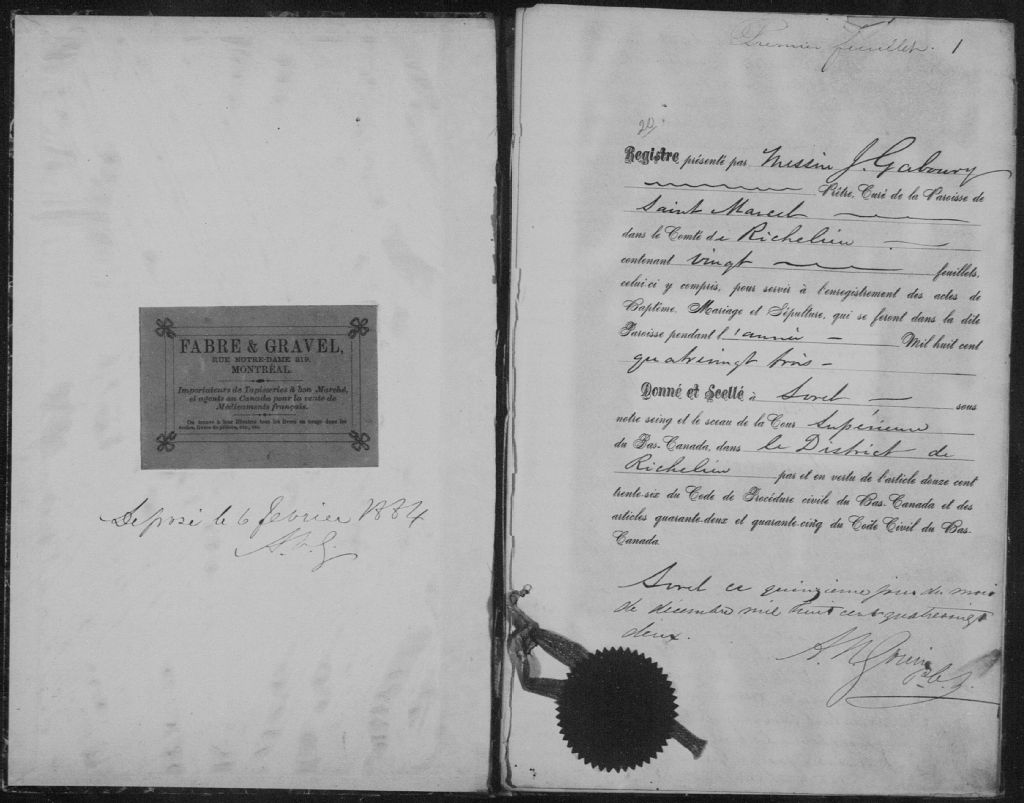 FABRE & GRAVEL,
RUE NOTRE-DAME 219,
MONTRÉAL.
Importateurs de Tapisseries à bon Marché,
et agents au Canada pour la vente de
Médicaments français.
On trouve à leur librairie tous les livres en usage dans les
écoles, livres de prières, etc., etc.
Déposé le 6 février 1884
A.N.G.
Premier feuillet. 1
20
Registre présenté par Messire J. Gaboury
Prêtre, Curé de la Paroisse de
Saint Marcel
dans le Comté de Richelieu
contenant vingt feuillets,
celui-ci y compris, pour servir à l'enregistrement des actes de
Baptême, Mariage et Sépulture, qui se feront dans la dite
Paroisse pendant l'année Mil huit cent
quatrevingt trois
Donné et Scellé à Sorel sous
notre seing et le sceau de la Cour Supérieure
du Bas-Canada, dans le District de
Richelieu par et en vertu de l'article douze cent
trente-six du Code de Procédure civile du Bas-Canada et des
articles quarante-deux et quarante-cinq du Code Civil du Bas-
Canada.
Sorel ce quinzieme jour du mois
de décembre mil huit cent quatrevingt
deux.
A. N. Gouin